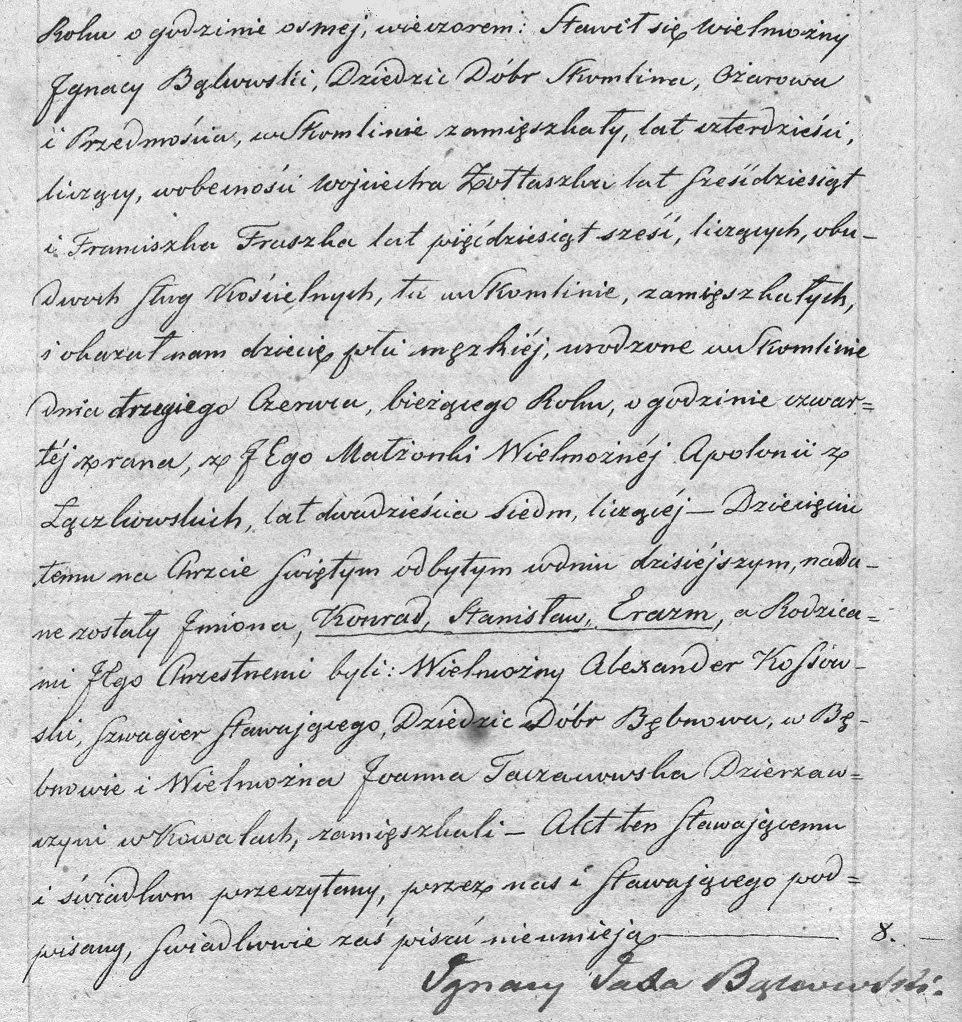 Roku o godzinie osmej, wieczorem: Stawił się Wielmożny
Jgnacy Bąkowski, Dziedzic Dóbr Skomlina, Ożarowa
i Przedmościa, w Skomlinie zamięszkały, lat czterdzieści,
liczący, w obecności Wojciecha Żołtaszka lat sześćdziesiąt
i Franciszka Fraszka lat pięćdziesiąt sześć, liczących, obu-
dwóch sług Kościelnych, tu w Skomlinie, zamięszkałych,
i okazał nam dziecię płci męzkiéj, urodzone w Skomlinie
dnia drugiego Czerwca, bieżącego Roku, o godzinie czwar=
téj z rana, z JEgo Małżonki Wielmożnéj Apolonii z
Łączkowskich, lat dwadzieścia siedm, liczącéj — Dziecięciu
temu na Chrzcie Swiętym odbytym w dniu dzisiéjszym, nada-
ne zostały Jmiona, Konrad, Stanisław, Erazm, a Rodzica=
mi JEgo Chrzestnemi byli: Wielmożny Alexander Kossow-
ski, Szwagier Stawającego, Dziedzic Dóbr Bębnowa, w Bę-
bnowie i Wielmożna Joanna Taczanowska Dzierzaw=
czyni w Kowalach, zamięszkali — Akt ten Stawającemu
i świadkom przeczytany, przez nas i Stawającego pod=
pisany, Swiadkowie zaś pisać nieumieją — 8. —
Ignacy Bąkowski.